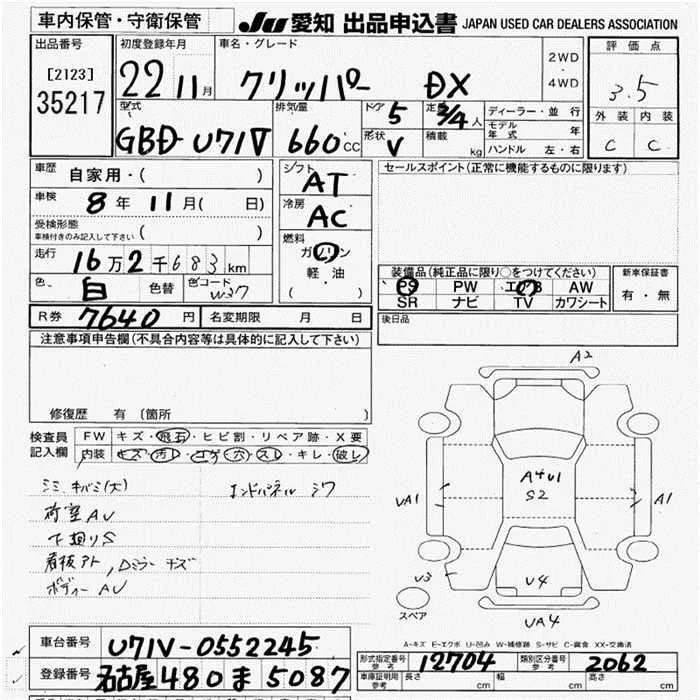 車内保管・守衛保管
JU 愛知 出品申込書 JAPAN USED CAR DEALERS ASSOCIATION
出品番号
[2123]
35217
初度登録年月
22 11月
車名・グレード
クリッパー DX
2WD
・
4WD
評価点
3.5
外装 内装
C C
型式
GBD-U71V
排気量
660cc
ドア 5
定員 2/4人
形状 V
積載 kg
ディーラー・並行
モデル年式 年
ハンドル 左・右
車歴
自家用・( )
車検
8年 11月( 日)
受検形態
車検付きのみ記入して下さい ( )
走行
16万2千683km
色 白 色替 色コード W37
R券 7640円 名変期限 月 日
シフト
AT
冷房
AC
燃料
ガソリン
軽油
( )
セールスポイント(正常に機能するものに限ります)
装備品(純正品に限り○をつけてください)
PS PW エアB AW
SR ナビ TV カワシート
新車保証書
有・無
後日品
注意事項申告欄(不具合内容等は具体的に記入して下さい)
修復歴 有 〔箇所 〕
検査員記入欄
FW キズ・飛石・ヒビ割・リペア跡・X要
内装 キズ・汚レ・コゲ・穴・スレ・キレ・破レ
ミミ、キバミ(大)
荷室AU
下廻りS
看板アト, Dミラーキズ
ボディーAU
エンドパネル シワ
A2
A4U1
S2
UA1
A1
U3
U4
UA4
スペア
A-キズ E-エクボ U-凹み W-補修跡 S-サビ C-腐食 XX-交換済
車台番号 U71V-0552245
登録番号 名古屋480ま5087
形式指定番号 参考 12704
類別区分番号 参考 2062
車庫証明用 参考 長さ cm 幅 cm 高さ cm